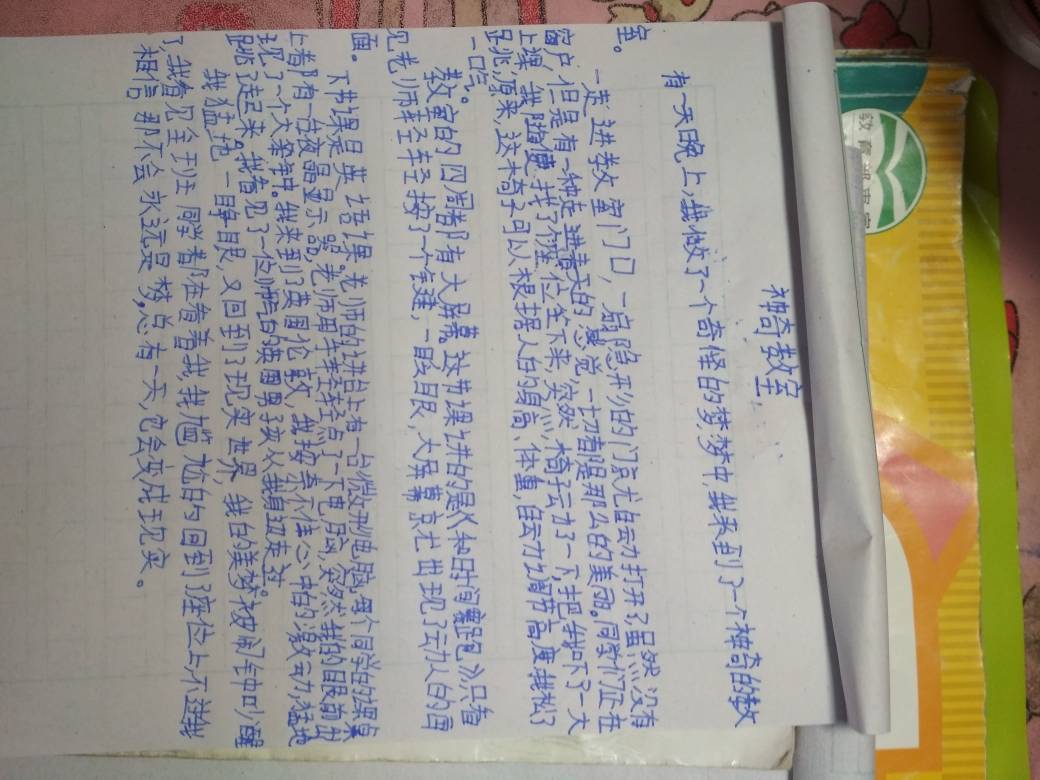 神奇教室
有一天晚上,我做了一个奇怪的梦,梦中,我来到了一个神奇的教
室。
一走进教室门口,一扇隐形的门就自动打开了,虽然没有
窗户,但是有一种走进春天的感觉,一切都是那么的美丽。同学们正在
上课,我随便找了个座位坐下来,突然,椅子动了一下,把我吓了一大
跳,原来,这木椅子可以根据人的身高、体重,自动调节高度,我松了
一口气。
教室的四周都有大屏幕。这节课讲的是《和时间赛跑》,只看
见老师轻轻按了一个键,一眨眼,大屏幕就出现了动人的画
面。
下节课是英语课。老师的讲台上有一台微型电脑,每个同学的课桌
上都有一台液晶显示器,老师用手轻轻点了一下电脑,突然,我的眼前出
现了一个大笨钟。我来到了英国伦敦,我按奈不住心中的激动,猛地
跳了起来。我看见了一位帅气的英国男孩从我身边走过。
我猛地一睁眼,又回到了现实世界,我的美梦被闹钟叫醒
了,我看见全班同学都在看着我,我尴尬的回到了座位上,不过我
相信,那不会永远是梦,总有一天,它会变成现实。
教育部审定